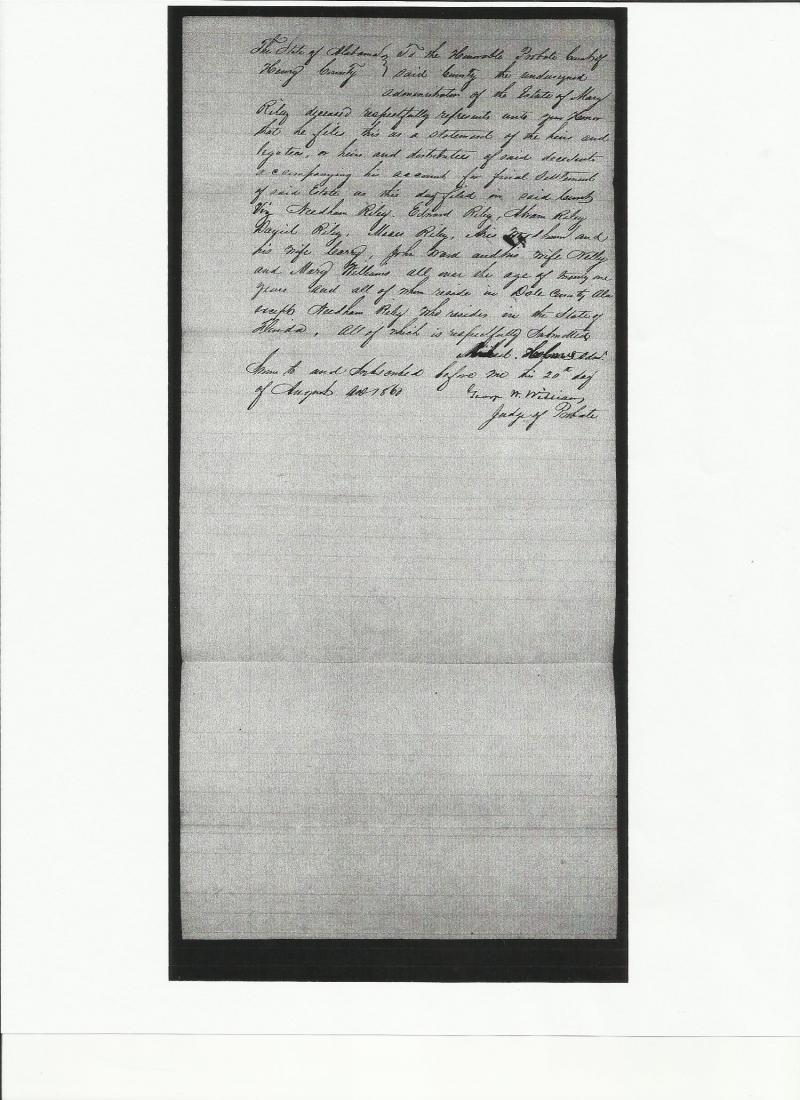 The State of Alabama } To the Honorable Probate Court of
Henry County } said County the undersigned
administrator of the Estate of Mary
Riley deceased respectfully represents unto your Honor
that he files this as a statement of the heirs and
legatees, or heirs and distributees of said decedents
accompanying his account for final Settlement
of said Estate as this day filed in said Court
Viz Needham Riley, Edward Riley, Abram Riley
Daniel Riley, Moses Riley, and
his wife, John Ward and his wife
and Mary Williams all over the age of twenty one
years and all of whom reside in Dale County Ala
except Needham Riley who resides in the State of
Florida. All of which is respectfully Submitted
Adm.
Sworn to and Subscribed before me this 20th day
of August AD 1860 George W. Williams
Judge of Probate